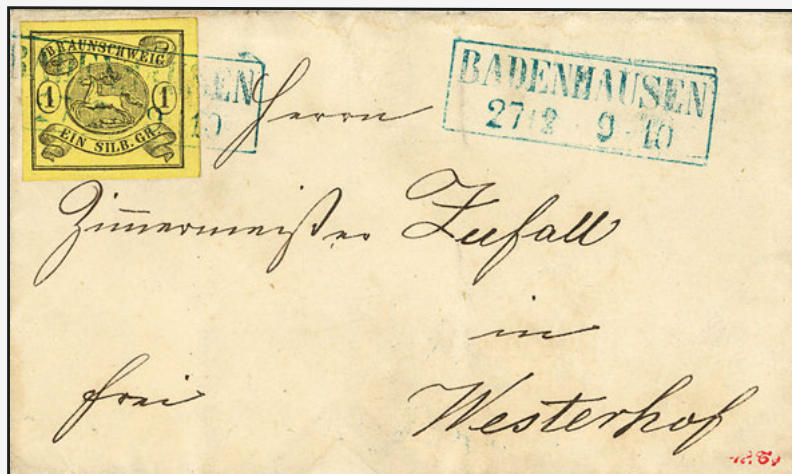 BRAUNSCHWEIG
1 1
EIN SILB. GR.
BADENHAUSEN
9-10
Herrn
Zimmermeister Zufall
in
frei
Westerhof